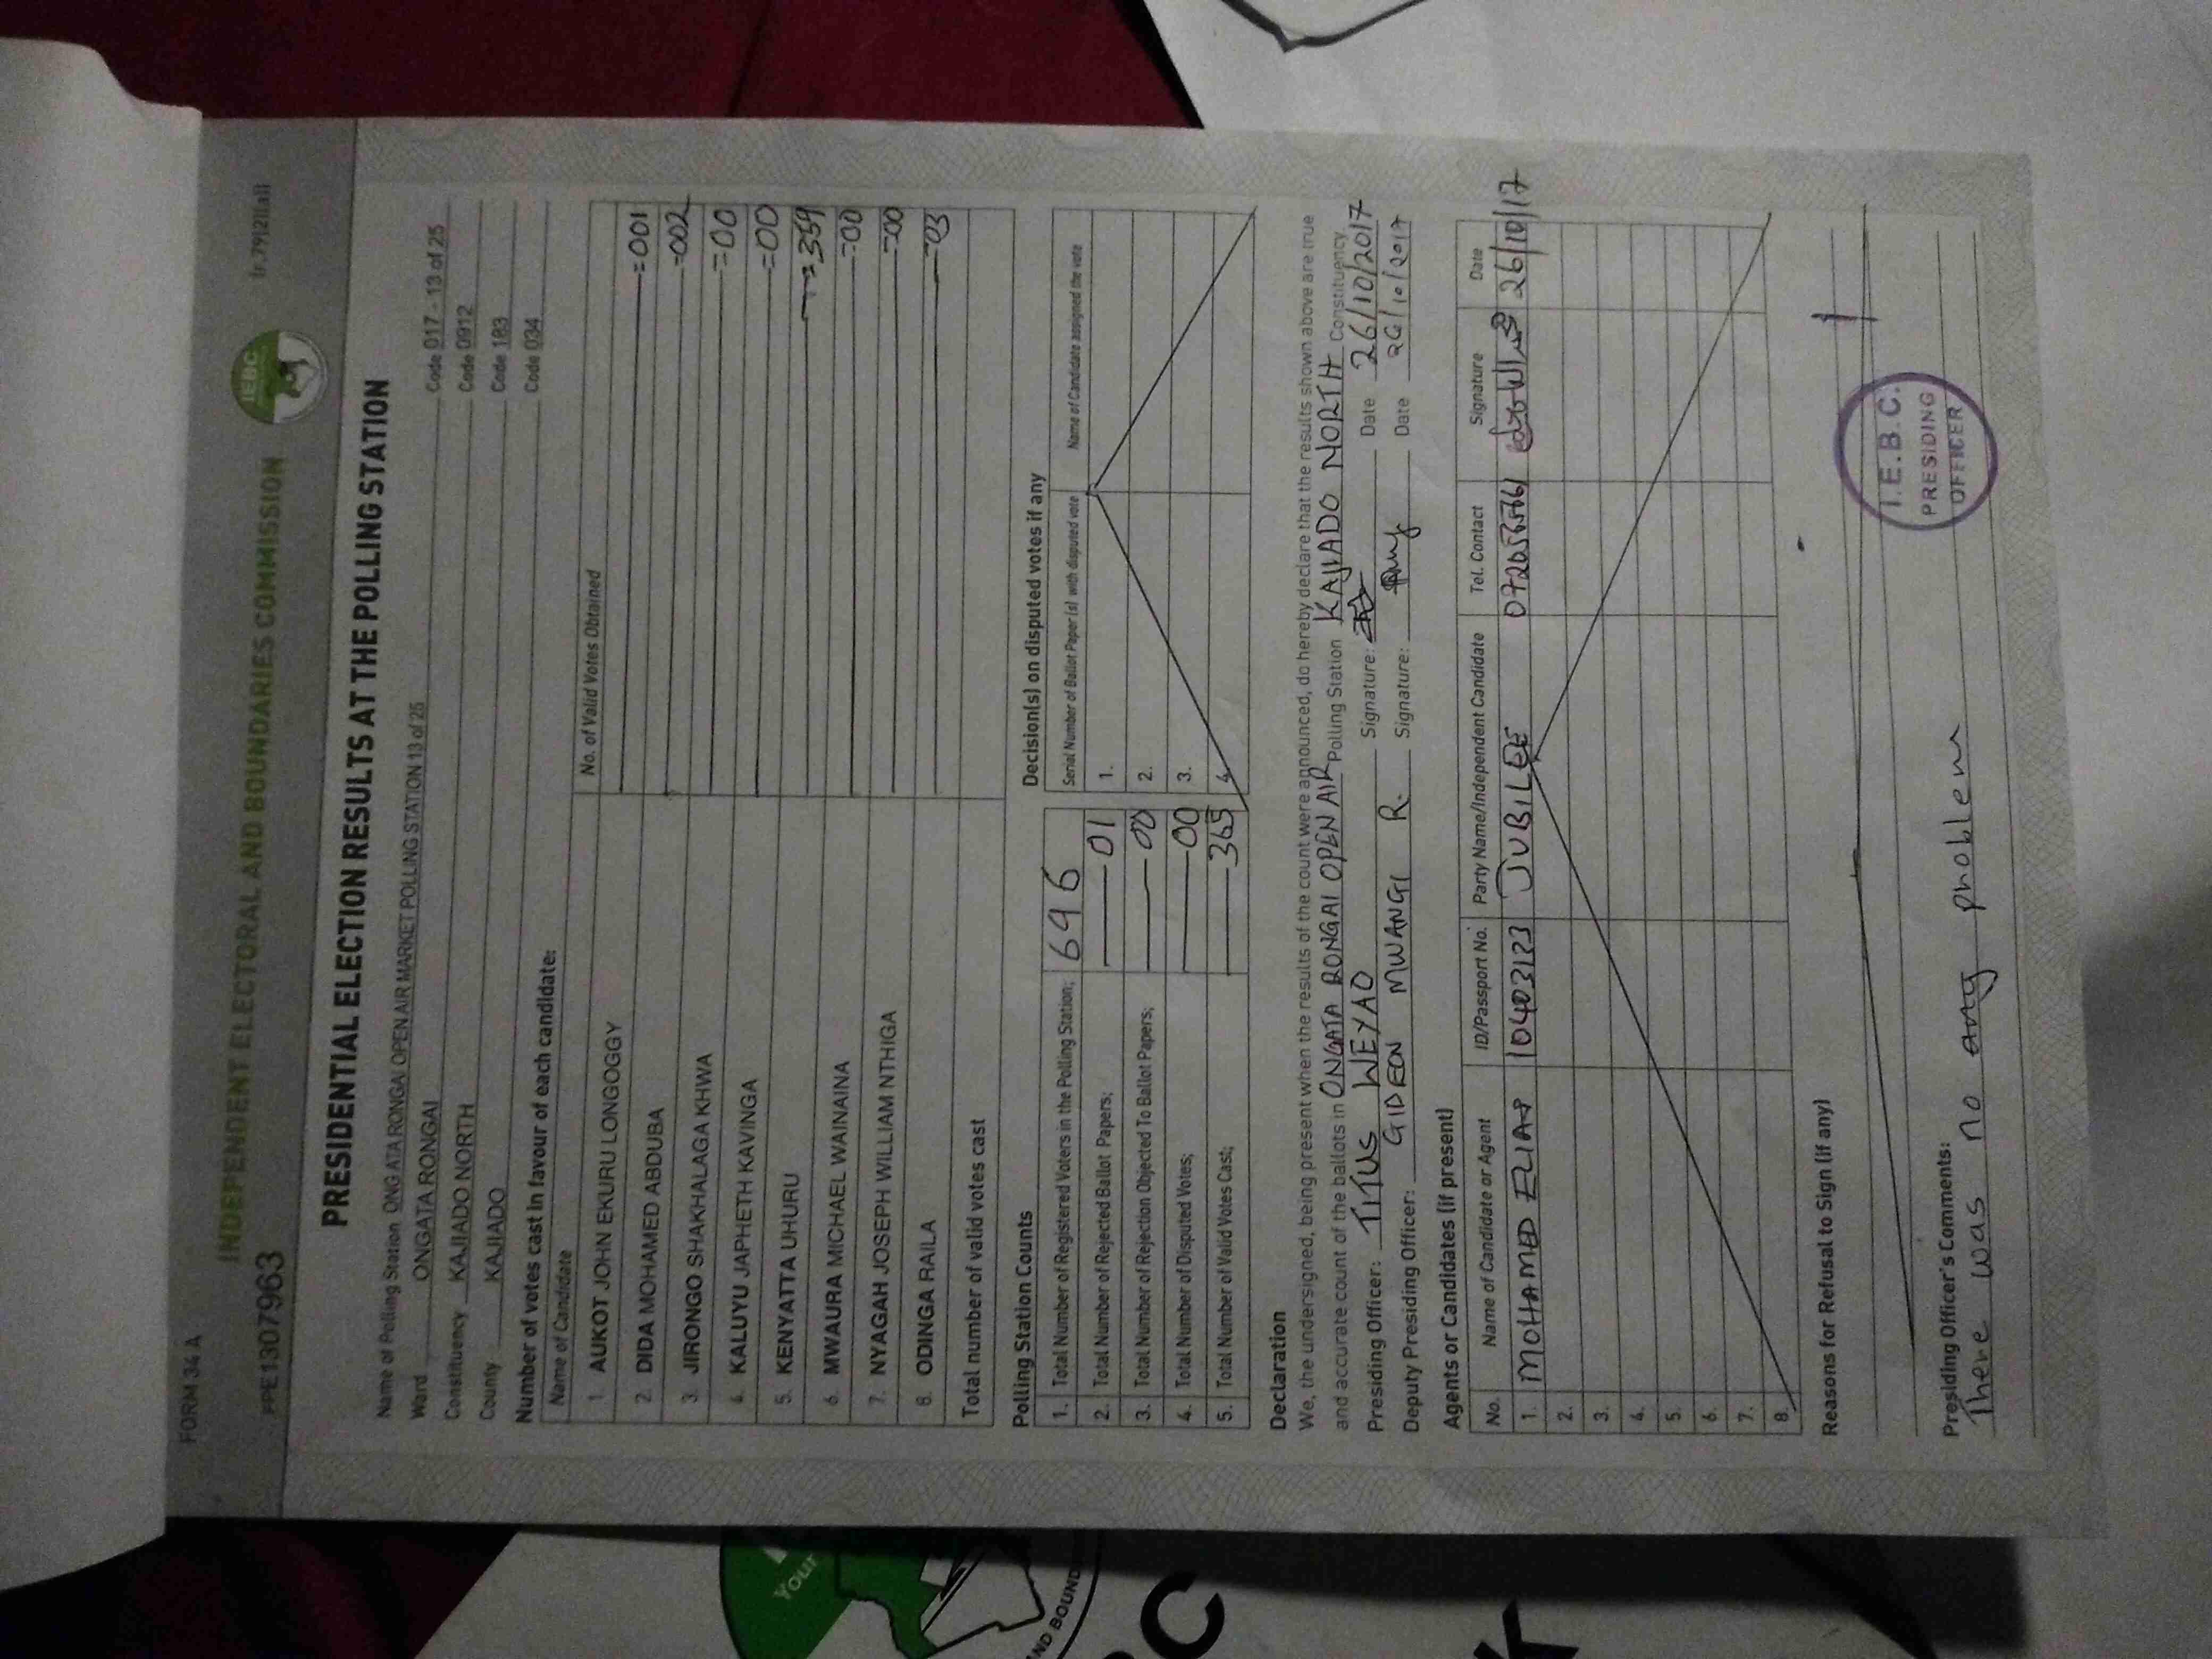 FORM 34 A
INDEPENDENT ELECTORAL AND BOUNDARIES COMMISSION
IEBC
(r.79(2)(a))
PPE1307963
PRESIDENTIAL ELECTION RESULTS AT THE POLLING STATION
Name of Polling Station ONG ATA RONGA OPEN AIR MARKET POLLING STATION 13 of 25 Code 017 - 13 of 25
Ward ONGATA RONGAI Code 0912
Constituency KAJIADO NORTH Code 183
County KAJIADO Code 034
Number of votes cast in favour of each candidate:
Name of Candidate No. of Valid Votes Obtained
1. AUKOT JOHN EKURU LONGOGGY =001
2. DIDA MOHAMED ABDUBA =002
3. JIRONGO SHAKHALAGA KHWA =00
4. KALUYU JAPHETH KAVINGA =00
5. KENYATTA UHURU =359
6. MWAURA MICHAEL WAINAINA =00
7. NYAGAH JOSEPH WILLIAM NTHIGA =00
8. ODINGA RAILA =03
Total number of valid votes cast
Polling Station Counts
1. Total Number of Registered Voters in the Polling Station; 696
2. Total Number of Rejected Ballot Papers; 01
3. Total Number of Rejection Objected To Ballot Papers; 00
4. Total Number of Disputed Votes; 00
5. Total Number of Valid Votes Cast; 365
Decision(s) on disputed votes if any
Serial Number of Ballot Paper (s) with disputed vote Name of Candidate assigned the vote
1.
2.
3.
4.
Declaration
We, the undersigned, being present when the results of the count were announced, do hereby declare that the results shown above are true
and accurate count of the ballots in ONGATA RONGAI OPEN AIR Polling Station KAJIADO NORTH Constituency
Presiding Officer: TITUS WEYAO Signature: Date 26/10/2017
Deputy Presiding Officer: GIDEON MWANGI R. Signature: Date 26/10/2017
Agents or Candidates (if present)
No. Name of Candidate or Agent ID/Passport No. Party Name/Independent Candidate Tel. Contact Signature Date
1. MOHAMED 10403123 JUBILEE 26/10/17
2.
3.
4.
5.
6.
7.
8.
Reasons for Refusal to Sign (if any)
Presiding Officer's Comments:
There was no any problem
I.E.B.C.
PRESIDING
OFFICER
Your
AND BOUND
C
K